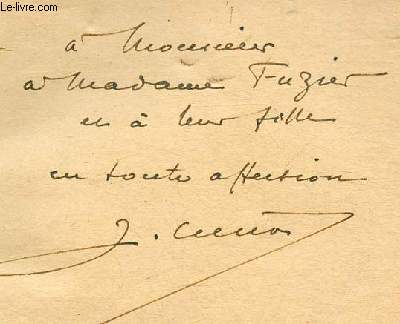 Le-livre.com
à Monsieur
à Madame Fuzier
et à leur fille
en toute affection
J.